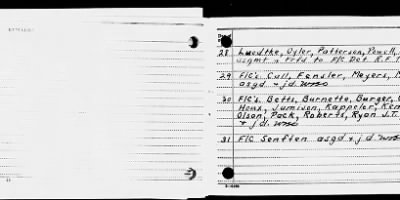 28 Luedthe, Oyler, Patterson, Powell,
asgmt & Trfd to F/C Det R.F.
29 F/C's. Call, Fensler, Meyers, M
asgd & jd.
30 F/C's. Betts, Burnette, Burger,
Hens, Jamison, Kappeler, Ken
Olson, Pack, Roberts, Ryan J.T.
& jd.
31 F/C Senften asgd & jd.